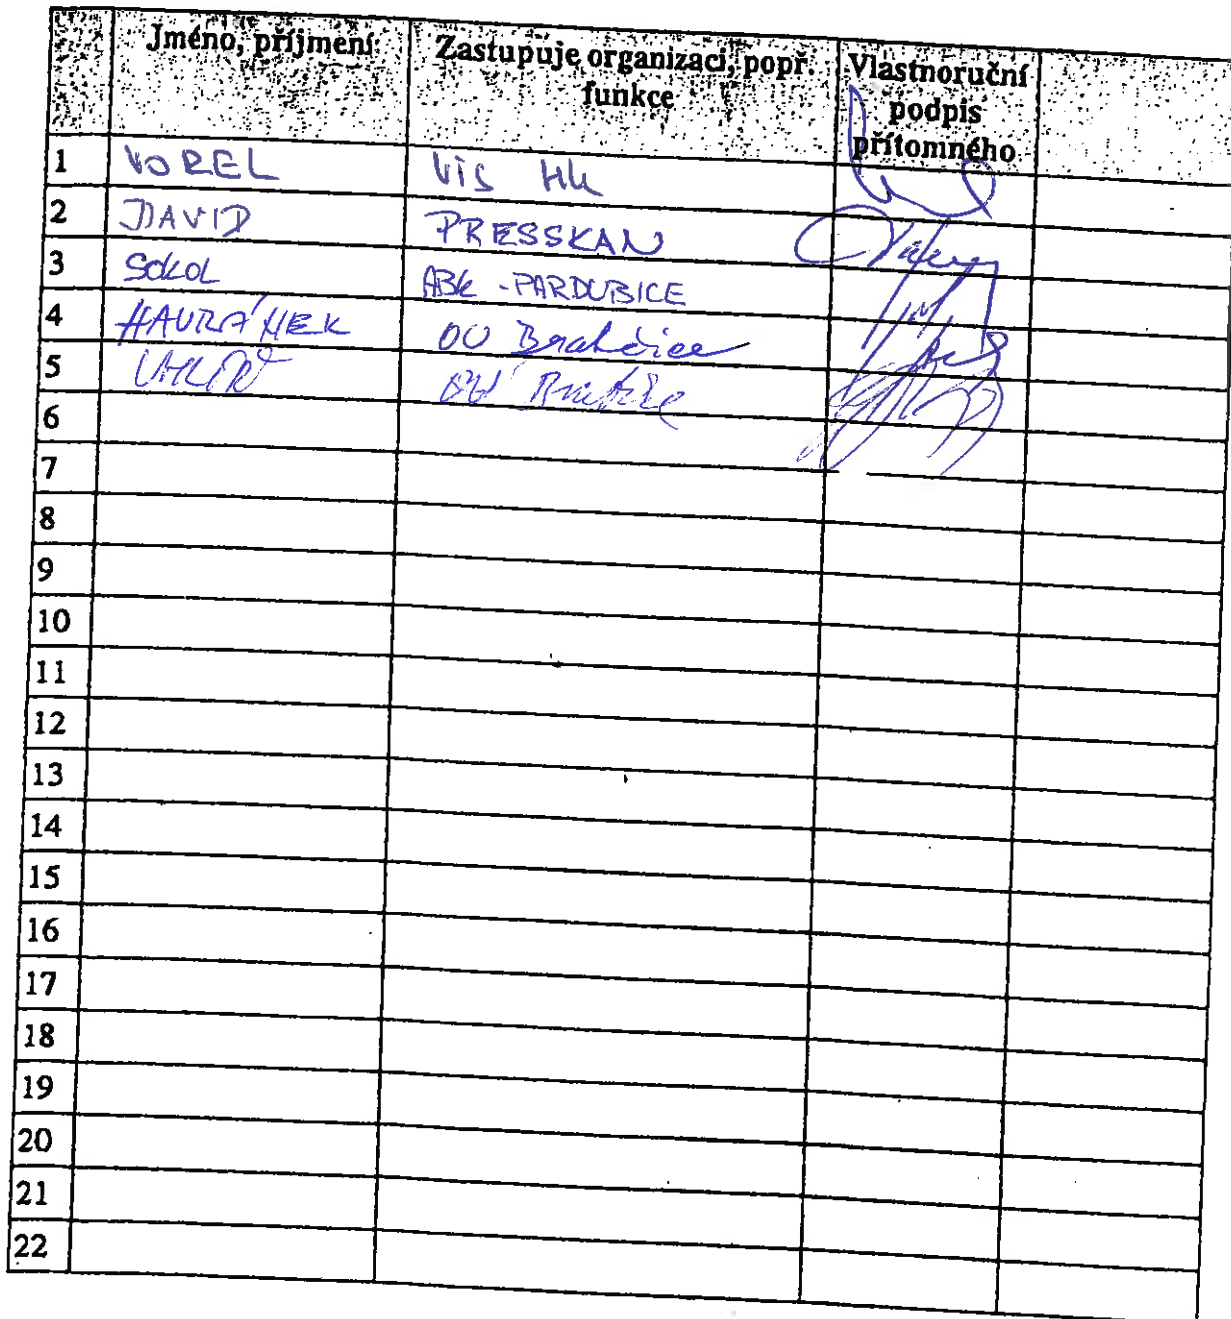 Jméno, příjmení Zastupuje organizaci, popř. Vlastnoruční
funkce podpis
přítomného
1 VOREL VIS HK
2 DAVID PRESSKAN
3 SOKOL ABK - PARDUBICE
4 HAVRÁNEK OÚ
5
6
7
8
9
10
11
12
13
14
15
16
17
18
19
20
21
22